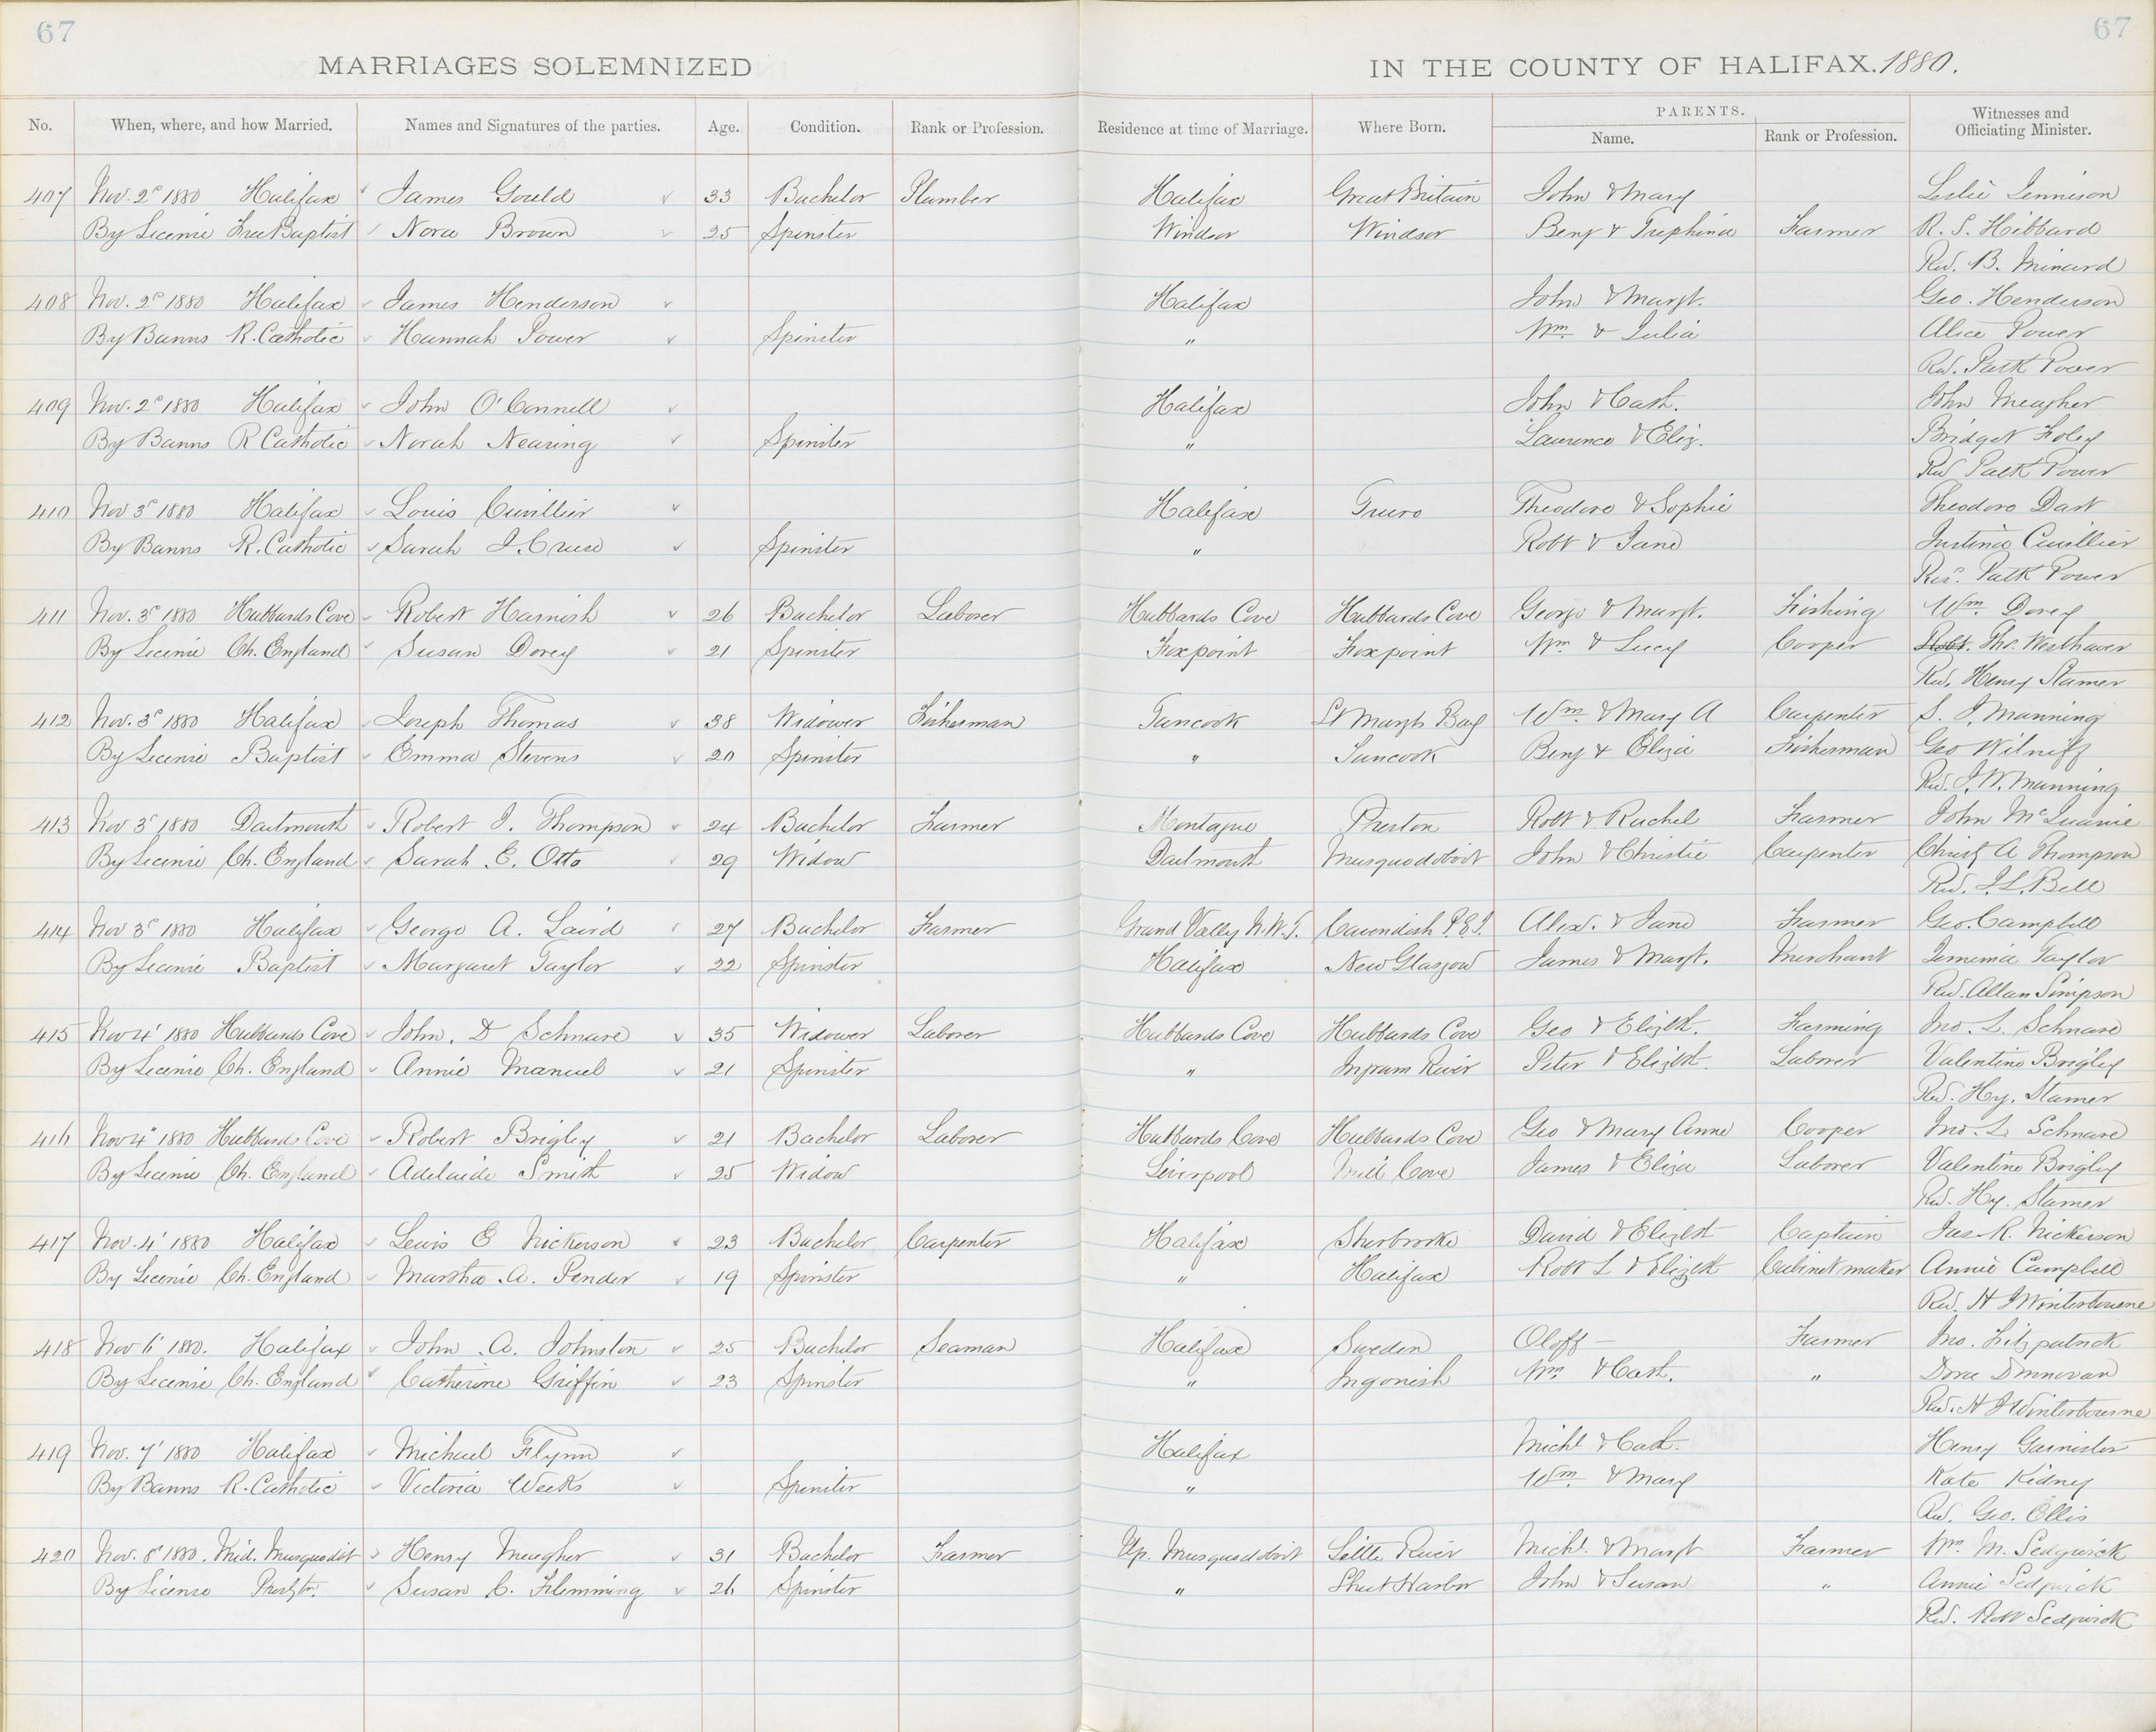 67 67
MARRIAGES SOLEMNIZED IN THE COUNTY OF HALIFAX. 1880.
No. When, where, and how Married. Names and Signatures of the parties. Age. Condition. Rank or Profession. Residence at time of Marriage. Where Born. PARENTS. Name. Rank or Profession. Witnesses and Officiating Minister.
407 Nov. 2d 1880 Halifax James Gould 33 Bachelor Plumber Halifax Great Britain John & Mary Leslie Jennison
By License Free Baptist Nora Brown 25 Spinster Windsor Windsor Benj & Triphina Farmer R. S. Hibbard
Rev. B. Minard
408 Nov. 2d 1880 Halifax James Henderson Halifax John & Margt. Geo. Henderson
By Banns R. Catholic Hannah Power Spinster " Wm. & Julia Alice Power
Rev. Patk Power
409 Nov. 2d 1880 Halifax John O'Connell Halifax John & Cath. John Meagher
By Banns R Catholic Norah Nearing Spinster " Laurence & Eliz. Bridget Foley
Rev Patk Power
410 Nov 3d 1880 Halifax Louis Cuvillier Halifax Truro Theodore & Sophie Theodore Dart
By Banns R. Catholic Sarah J. Cruse Spinster " Robt & Jane Justina Cuvillier
Rev. Patk Power
411 Nov. 3d 1880 Hubbards Cove Robert Harnish 26 Bachelor Laborer Hubbards Cove Hubbards Cove George & Margt. Fishing Wm. Dorey
By License Ch. England Susan Dorey 21 Spinster Foxpoint Foxpoint Wm & Lucy Cooper Tho. Westhaver
Rev. Henry Stamer
412 Nov. 3d 1880 Halifax Joseph Thomas 38 Widower Fisherman Tancook St Margts Bay Wm. & Mary A Carpenter S. J. Manning
By License Baptist Emma Stevens 20 Spinster " Tancook Benj & Eliza Fisherman Geo
Rev. J. W. Manning
413 Nov 3d 1880 Dartmouth Robert J. Thompson 24 Bachelor Farmer Montague Preston Robt & Rachel Farmer John
By License Ch. England Sarah E. Otto 29 Widow Dartmouth Musquodoboit John & Christie Carpenter A Thompson
Rev. J. L. Bell
414 Nov 3d 1880 Halifax George A. Laird 27 Bachelor Farmer Grand Valley N.W.T. Cavendish P.E.I. Alex. & Jane Farmer Geo. Campbell
By License Baptist Margaret Taylor 22 Spinster Halifax New Glasgow James & Margt. Merchant Jemima Taylor
Rev. Allan Simpson
415 Nov 4' 1880 Hubbards Cove John. D Schnare 35 Widower Laborer Hubbards Cove Hubbards Cove Geo & Elizbt. Farming Jno. L. Schnare
By License Ch. England Annie Manuel 21 Spinster " Ingram River Peter & Elizbt. Laborer Valentine Brigley
Rev. Hy. Stamer
416 Nov 4" 1880 Hubbards Cove Robert Brigley 21 Bachelor Laborer Hubbards Cove Hubbards Cove Geo & Mary Anne Cooper Jno. L. Schnare
By License Ch. England Adelaide Smith 25 Widow Liverpool Mill Cove James & Eliza Laborer Valentine Brigley
Rev. Hy. Stamer
417 Nov. 4' 1880 Halifax Lewis E Nickerson 23 Bachelor Carpenter Halifax Sherbrooke David & Elizbt Captain Jas R. Nickerson
By License Ch. England Martha A. Pender 19 Spinster " Halifax Robt L & Elizbt Cabinet maker Annie Campbell
Rev. H J Winterbourne
418 Nov 6' 1880. Halifax John A. Johnston 25 Bachelor Seaman Halifax Sweden Oloff — Farmer Jno. Fitzpatrick
By License Ch. England Catherine Griffin 23 Spinster " Ingonish Wm. & Cath. " Dora Donnovan
Rev. H J Winterbourne
419 Nov. 7' 1880 Halifax Michael Flynn Halifax Michl & Cath. Henry
By Banns R. Catholic Victoria Weeks Spinster " Wm. & Mary Kate Kidney
Rev. Geo. Ellis
420 Nov. 8' 1880. Mid. Musquodbt Henry Meagher 31 Bachelor Farmer Up. Musquodoboit Little River Michl. & Margt Farmer Wm. M. Sedgwick
By License Presbytn. Susan C. Flemming 26 Spinster " Sheet Harbor John & Susan " Annie Sedgwick
Rev. Robt Sedgwick